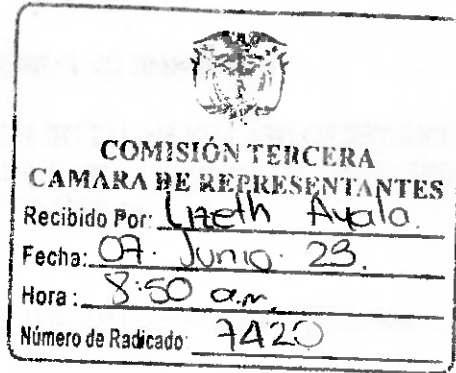 COMISIÓN TERCERA
CAMARA DE REPRESENTANTES
Recibido Por: Lizeth Ayala.
Fecha: 07. Junio. 23.
Hora: 8:50 a.m.
Número de Radicado: 7420